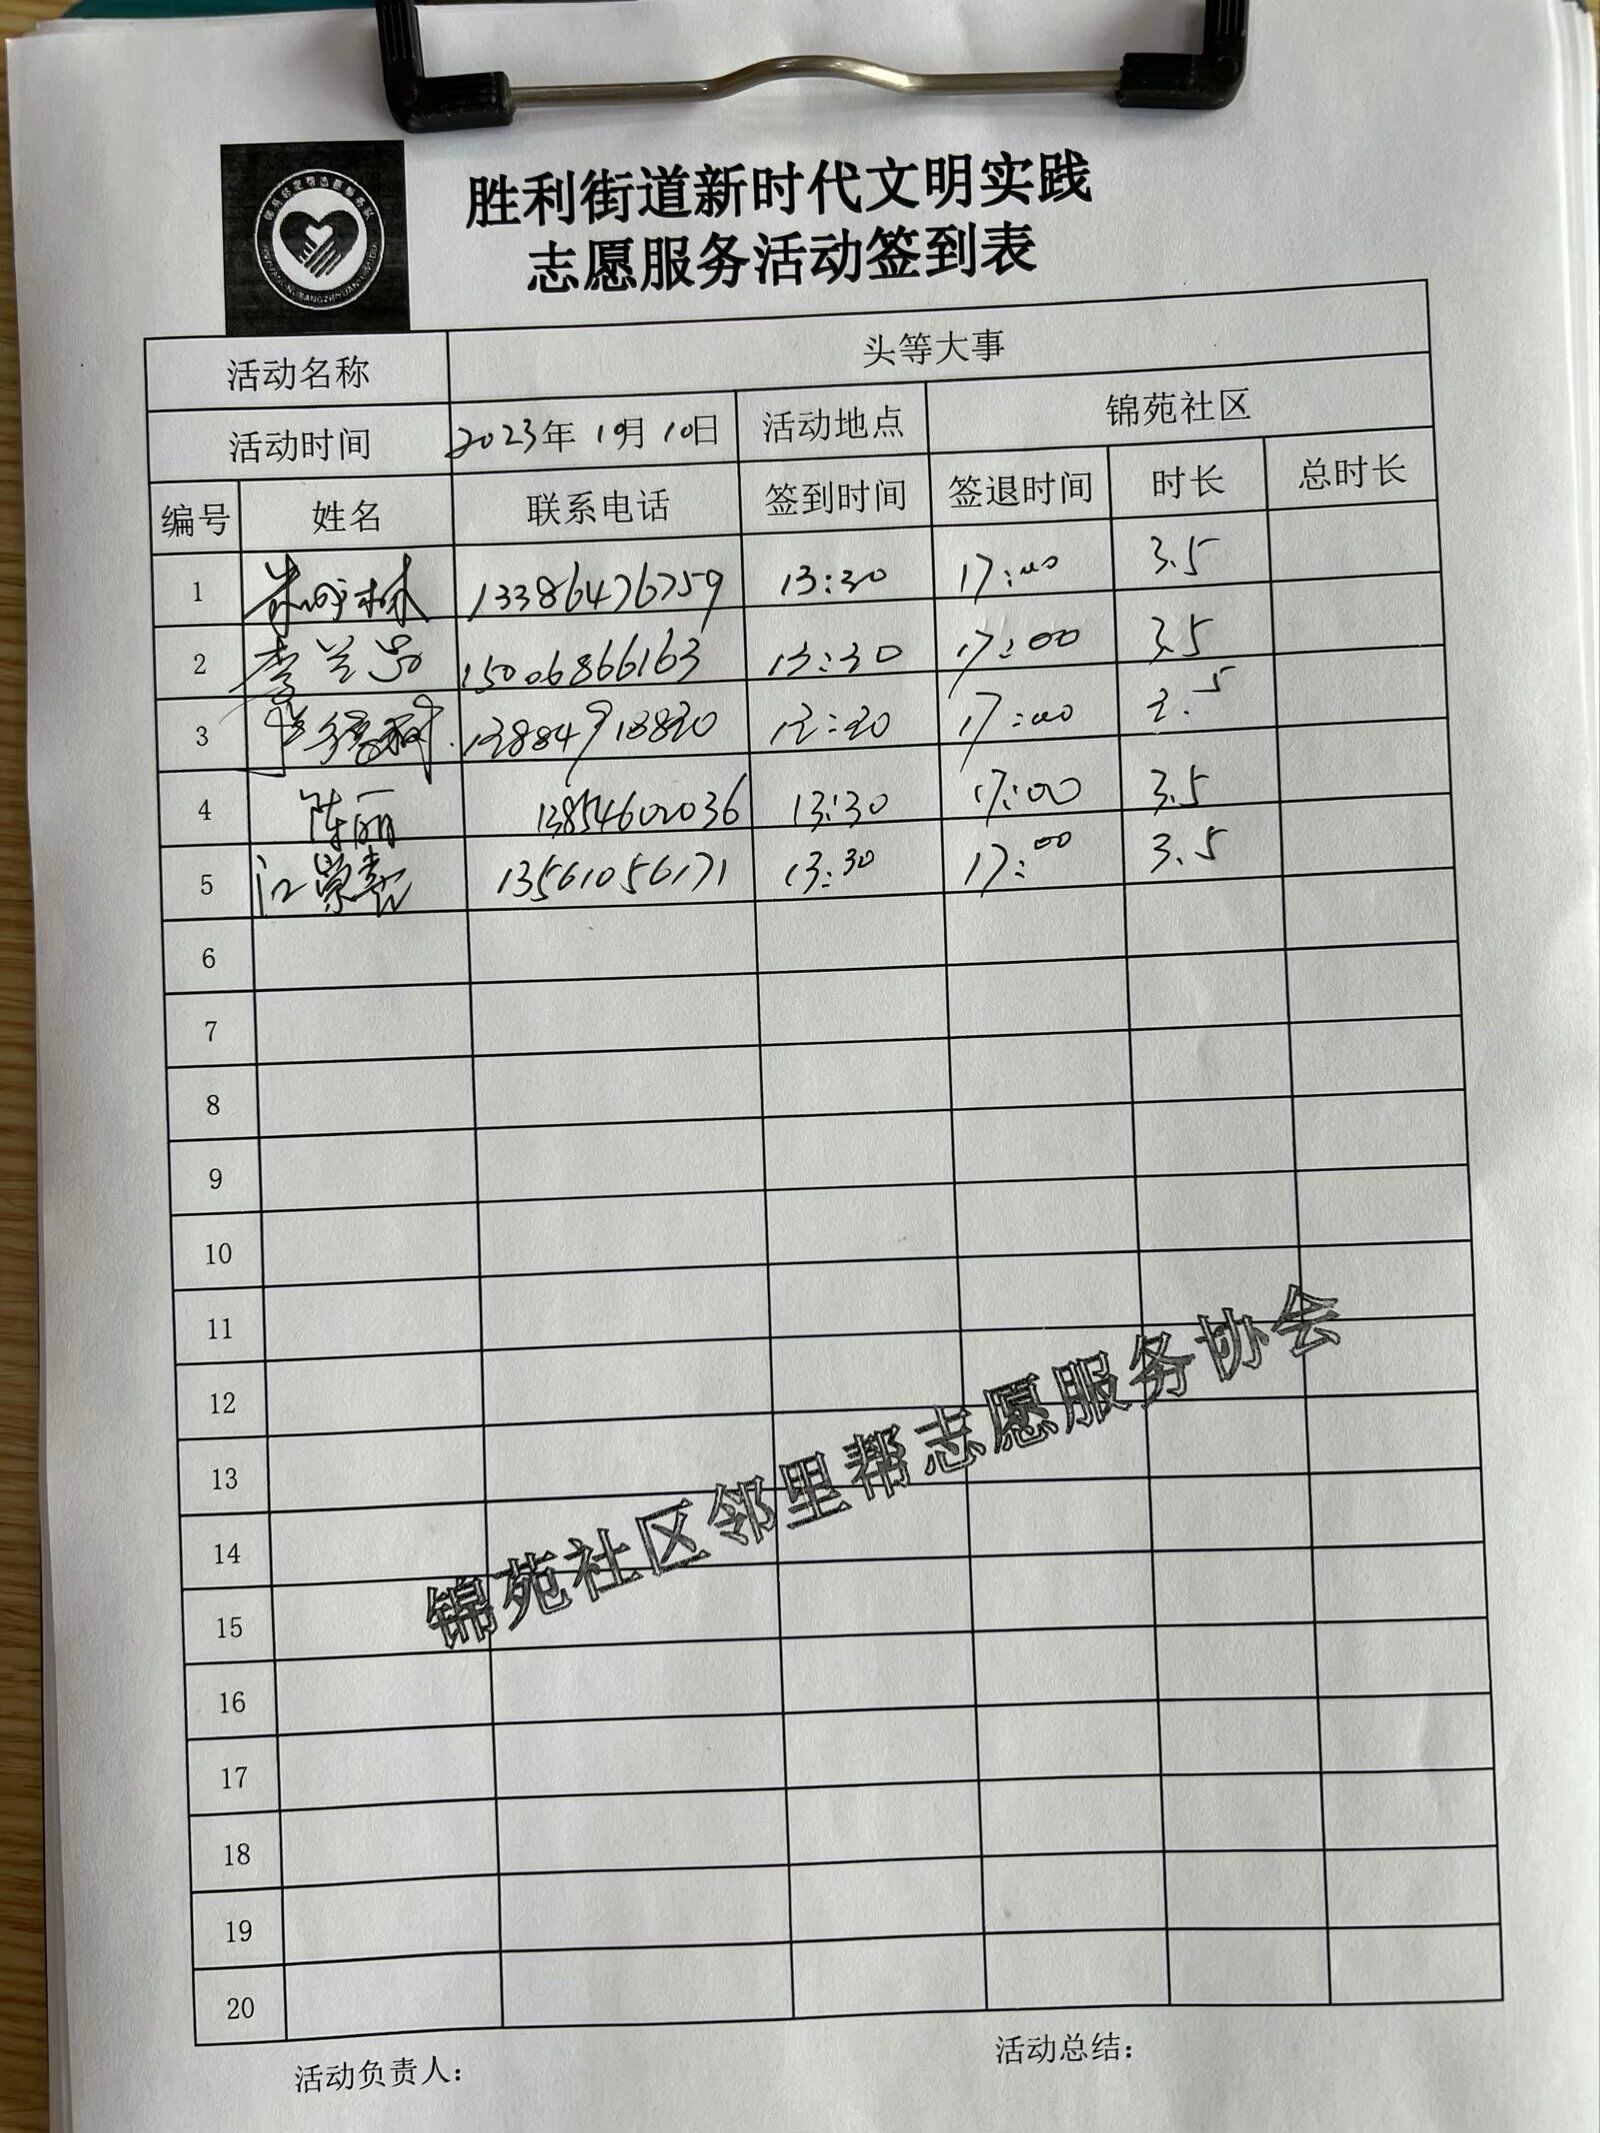 胜利街道新时代文明实践
志愿服务活动签到表
活动名称 头等大事
活动时间 2023年10月10日 活动地点 锦苑社区
编号 姓名 联系电话 签到时间 签退时间 时长 总时长
1 13386476759 13:30 17:00 3.5
2 李兰 15006866163 13:30 17:00 3.5
3 13884913820 17:00 .5
4 陈丽 13854602036 13:30 17:00 3.5
5 江 13561056171 13:30 17:00 3.5
6
7
8
9
10
11
12
13
14
15
16
17
18
19
20
锦苑社区邻里帮志愿服务协会
活动负责人： 活动总结：